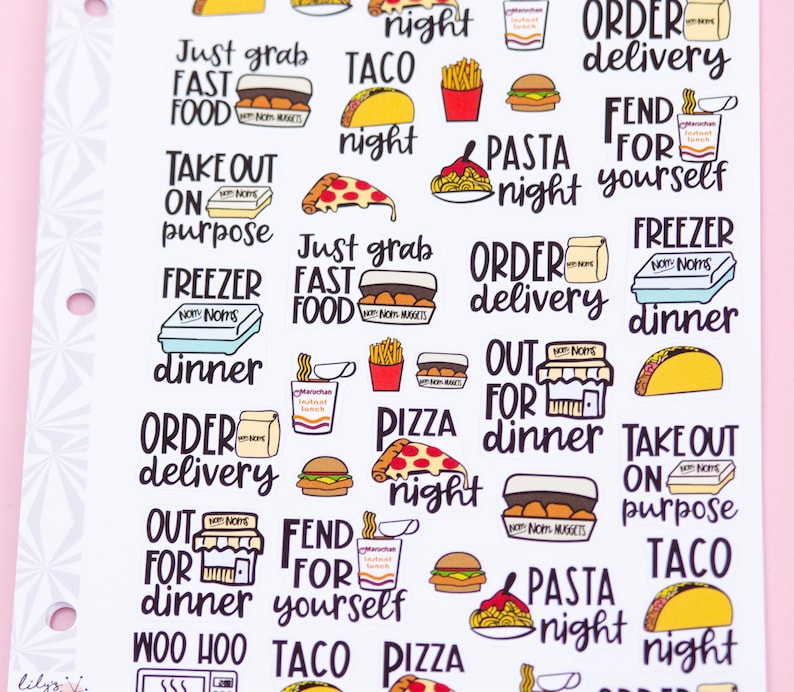 night
Maruchan
instant
lunch
ORDER
delivery
Just grab
FAST
FOOD
Nom Nom NUGGETS
TACO
night
FEND
FOR
yourself
Maruchan
instant
lunch
TAKE OUT
ON
purpose
Nom Noms
PASTA
night
FREEZER
Nom Noms
dinner
Just grab
FAST
FOOD
Nom Nom NUGGETS
ORDER
delivery
Nom Noms
FREEZER
Nom Noms
dinner
Maruchan
instant
lunch
OUT
FOR
dinner
Nom Noms
ORDER
delivery
Nom Noms
PIZZA
night
TAKE OUT
ON
purpose
Nom Noms
Nom Nom NUGGETS
OUT
FOR
dinner
Nom Noms
FEND
FOR
yourself
Maruchan
instant
lunch
PASTA
night
TACO
night
WOO HOO
TACO
PIZZA
lily's